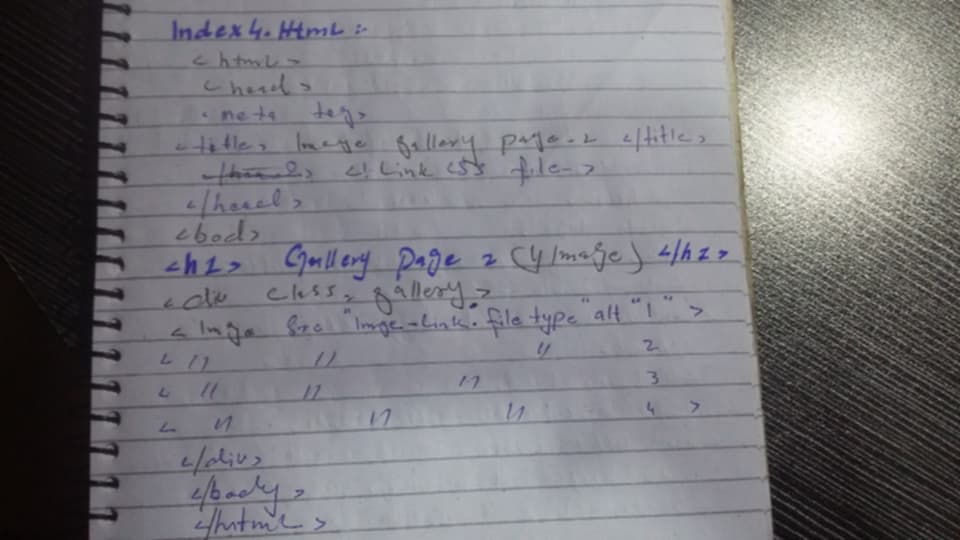 Index4.Html :-
<html>
<head>
<meta tag>
<title> Image gallery page-2 </title>
<! Link CSS file->
</head>
<body>
<h1> Gallery Page 2 (4 Image) </h1>
<div class= gallery>
<Imge Src "Imge-Link. file type" alt "1" >
< " " " 2
< " " " 3
< " " " 4 >
</div>
</body>
</html>